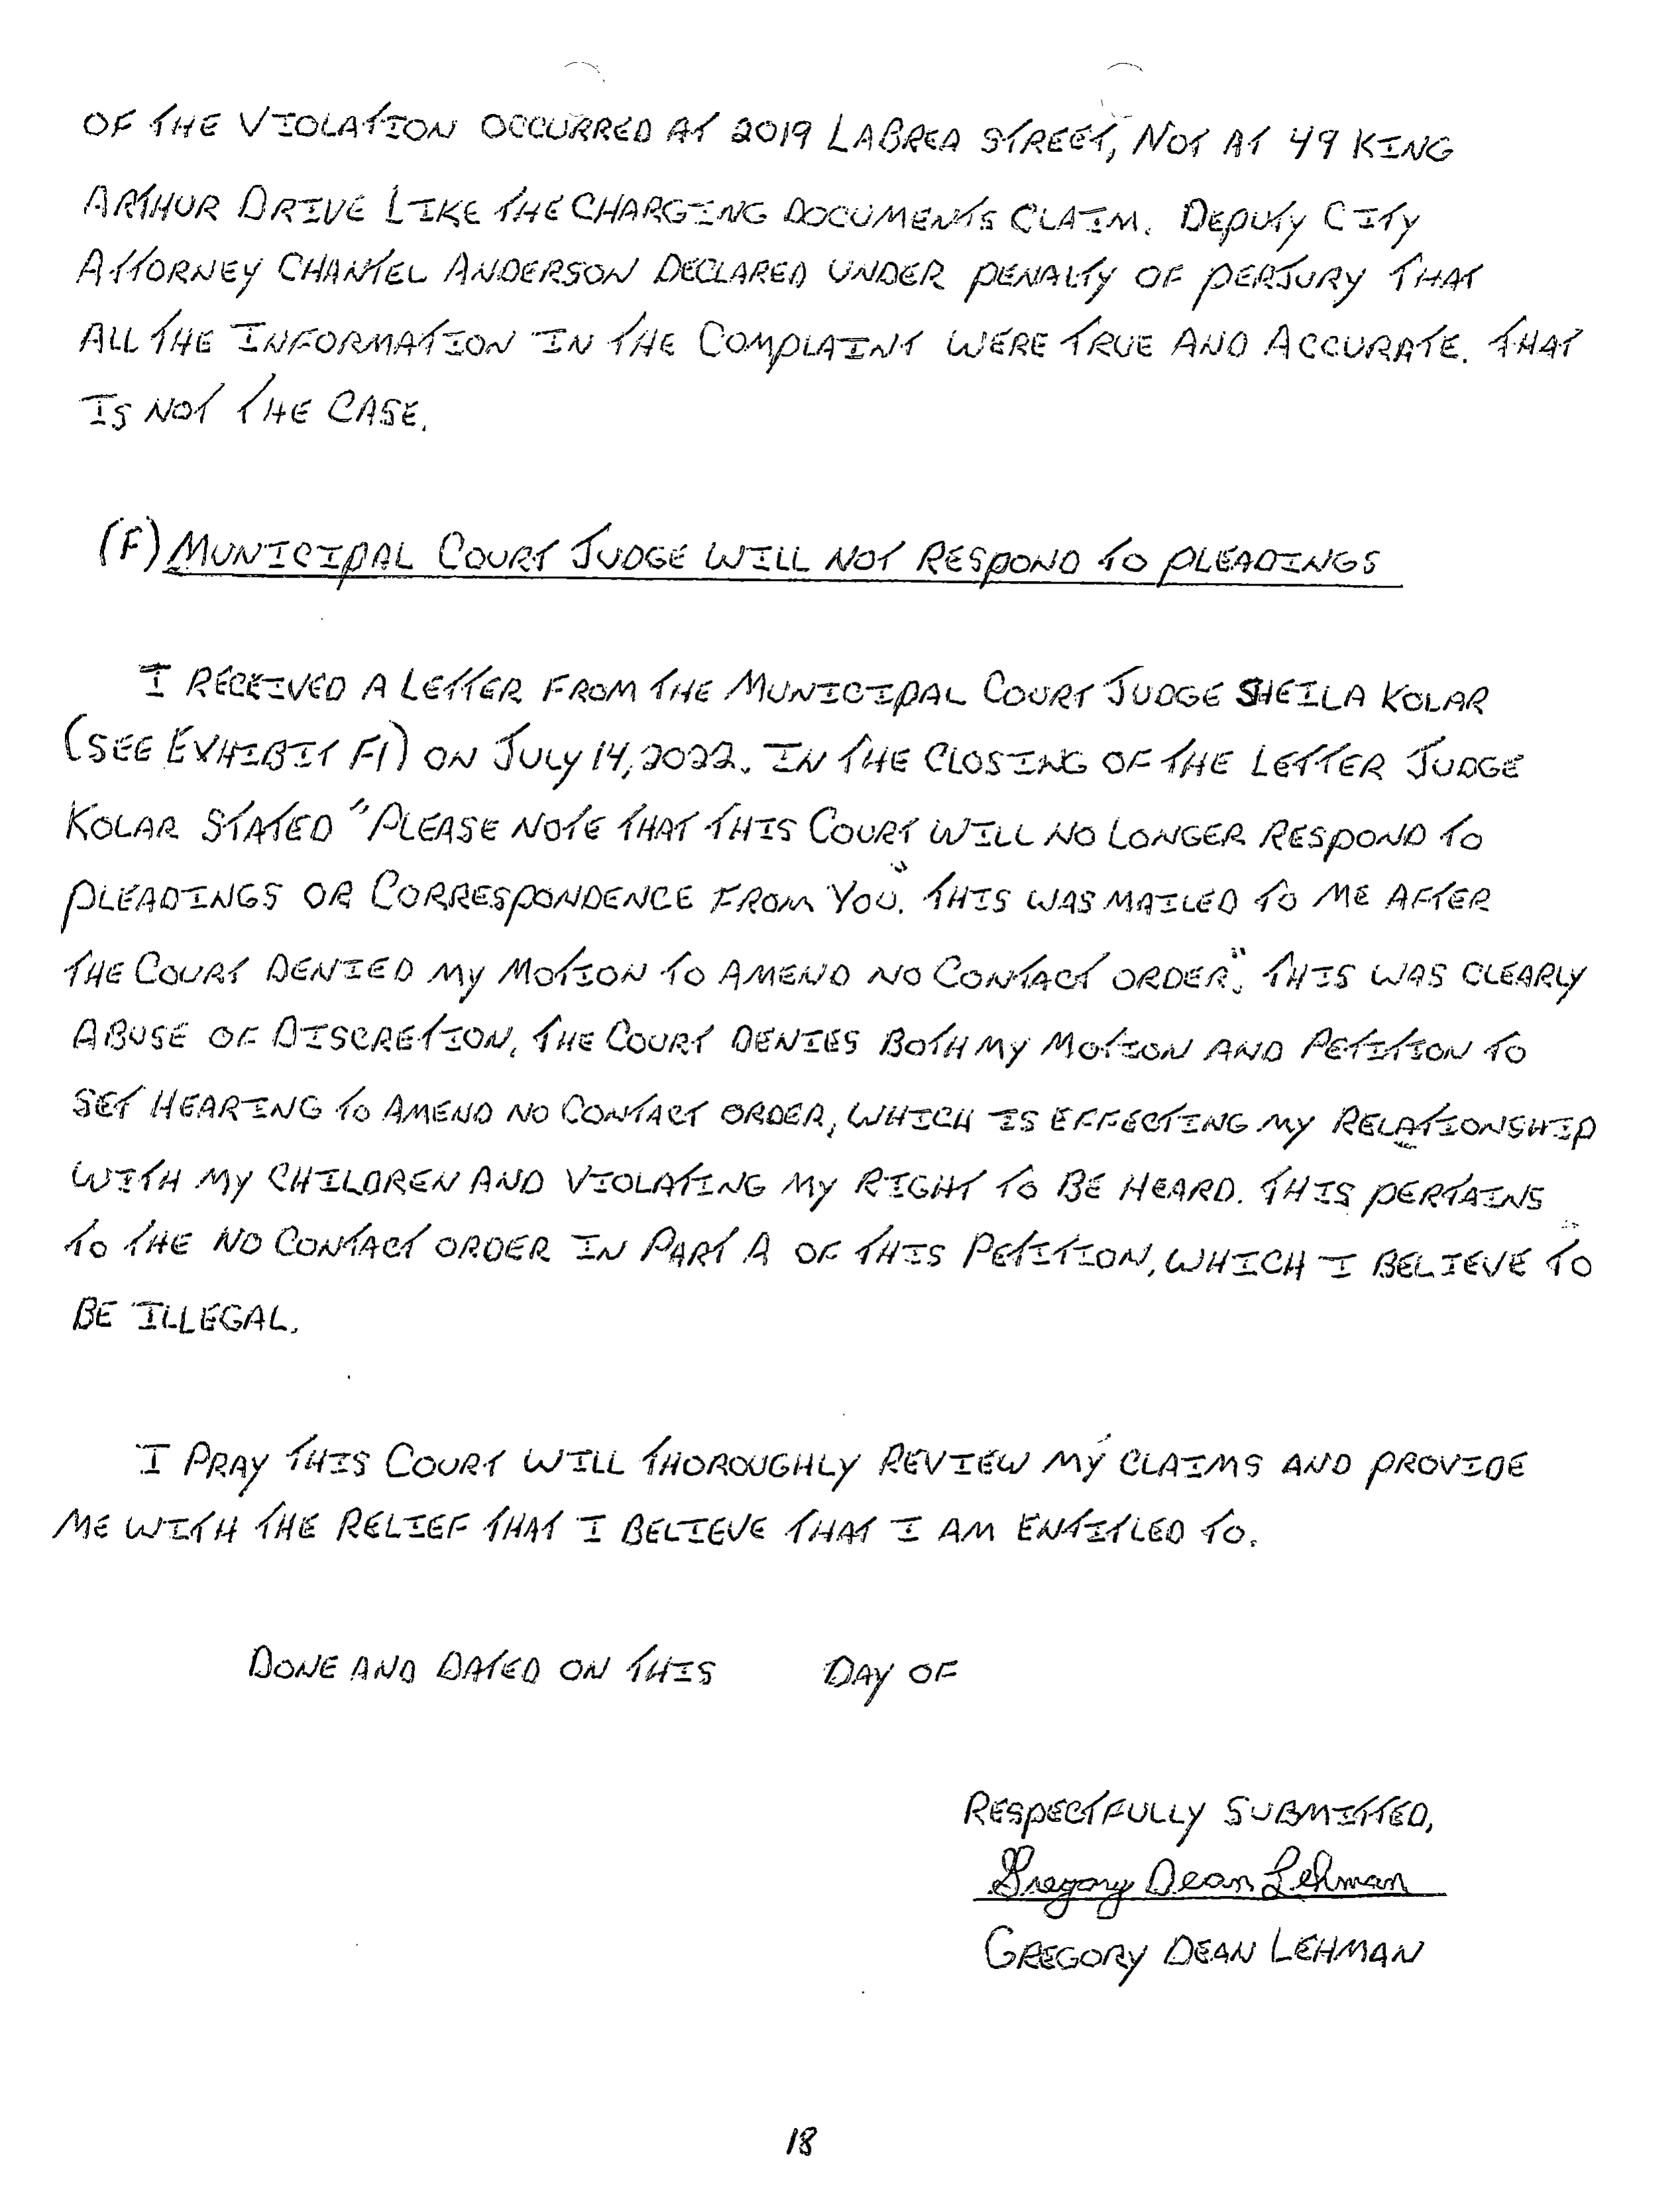 OF THE VIOLATION OCCURRED AT 2019 LABREA STREET, NOT AT 49 KING
ARTHUR DRIVE LIKE THE CHARGING DOCUMENTS CLAIM. DEPUTY CITY
ATTORNEY CHANTEL ANDERSON DECLARED UNDER PENALTY OF PERJURY THAT
ALL THE INFORMATION IN THE COMPLAINT WERE TRUE AND ACCURATE. THAT
IS NOT THE CASE.
(F) MUNICIPAL COURT JUDGE WILL NOT RESPOND TO PLEADINGS
I RECEIVED A LETTER FROM THE MUNICIPAL COURT JUDGE SHEILA KOLAR
(SEE EXHIBIT F1) ON JULY 14, 2022. IN THE CLOSING OF THE LETTER JUDGE
KOLAR STATED "PLEASE NOTE THAT THIS COURT WILL NO LONGER RESPOND TO
PLEADINGS OR CORRESPONDENCE FROM YOU". THIS WAS MAILED TO ME AFTER
THE COURT DENIED MY MOTION TO AMEND NO CONTACT ORDER". THIS WAS CLEARLY
ABUSE OF DISCRETION. THE COURT DENIES BOTH MY MOTION AND PETITION TO
SET HEARING TO AMEND NO CONTACT ORDER, WHICH IS EFFECTING MY RELATIONSHIP
WITH MY CHILDREN AND VIOLATING MY RIGHT TO BE HEARD. THIS PERTAINS
TO THE NO CONTACT ORDER IN PART A OF THIS PETITION, WHICH I BELIEVE TO
BE ILLEGAL.
I PRAY THIS COURT WILL THOROUGHLY REVIEW MY CLAIMS AND PROVIDE
ME WITH THE RELIEF THAT I BELIEVE THAT I AM ENTITLED TO.
DONE AND DATED ON THIS DAY OF
RESPECTFULLY SUBMITTED,
Gregory Dean Lehman
GREGORY DEAN LEHMAN
18